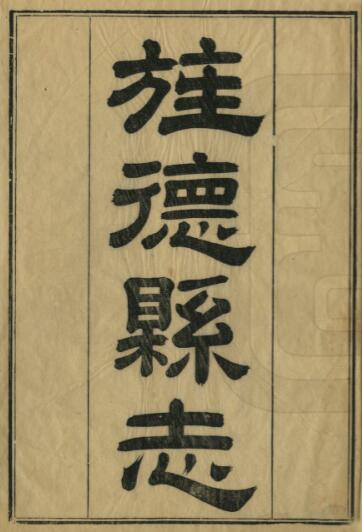 旌德縣志